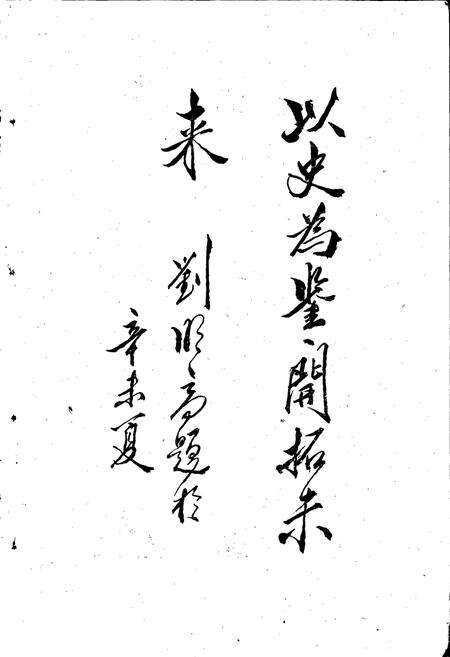 以史為鑒開拓未
来 劉明高題於
辛未夏